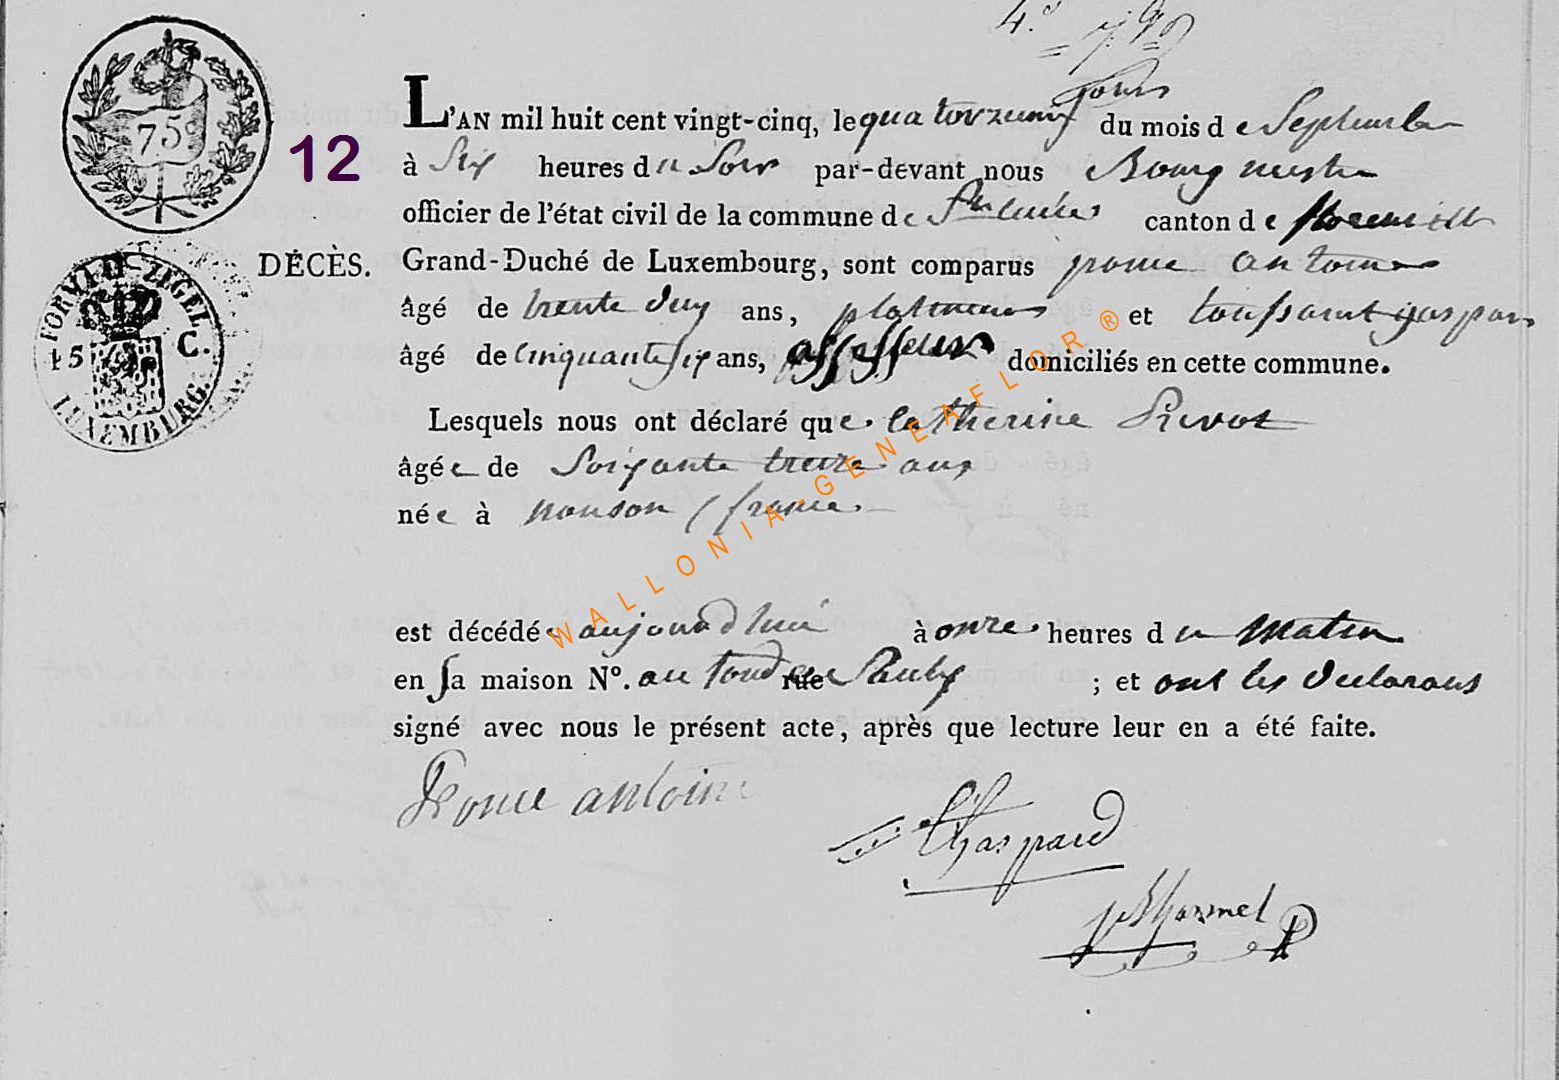 4.e
75
12
jours
L'AN mil huit cent vingt-cinq, le quatorzieme du mois de Septembre
à Six heures du Soir par-devant nous Bourgmestre
officier de l'état civil de la commune de Ste Cecile canton de florenville
DÉCÈS.
Grand-Duché de Luxembourg, sont comparus ponce antoine
âgé de trente deux ans, platineur et toussaint gaspar
âgé de Cinquante six ans, assesseur domiciliés en cette commune.
FORMAAT-ZEGEL
15 C.
LUXEMBURG.
Lesquels nous ont déclaré que Catherine Prevot
âgée de Soixante treize ans
née à mouson / france
est décédée aujourd'hui à onze heures du Matin
en sa maison N°. au fond rue ; et ont les declarans
signé avec nous le présent acte, après que lecture leur en a été faite.
Ponce antoine
Gaspard
WALLONIA-GENEAFLOR®